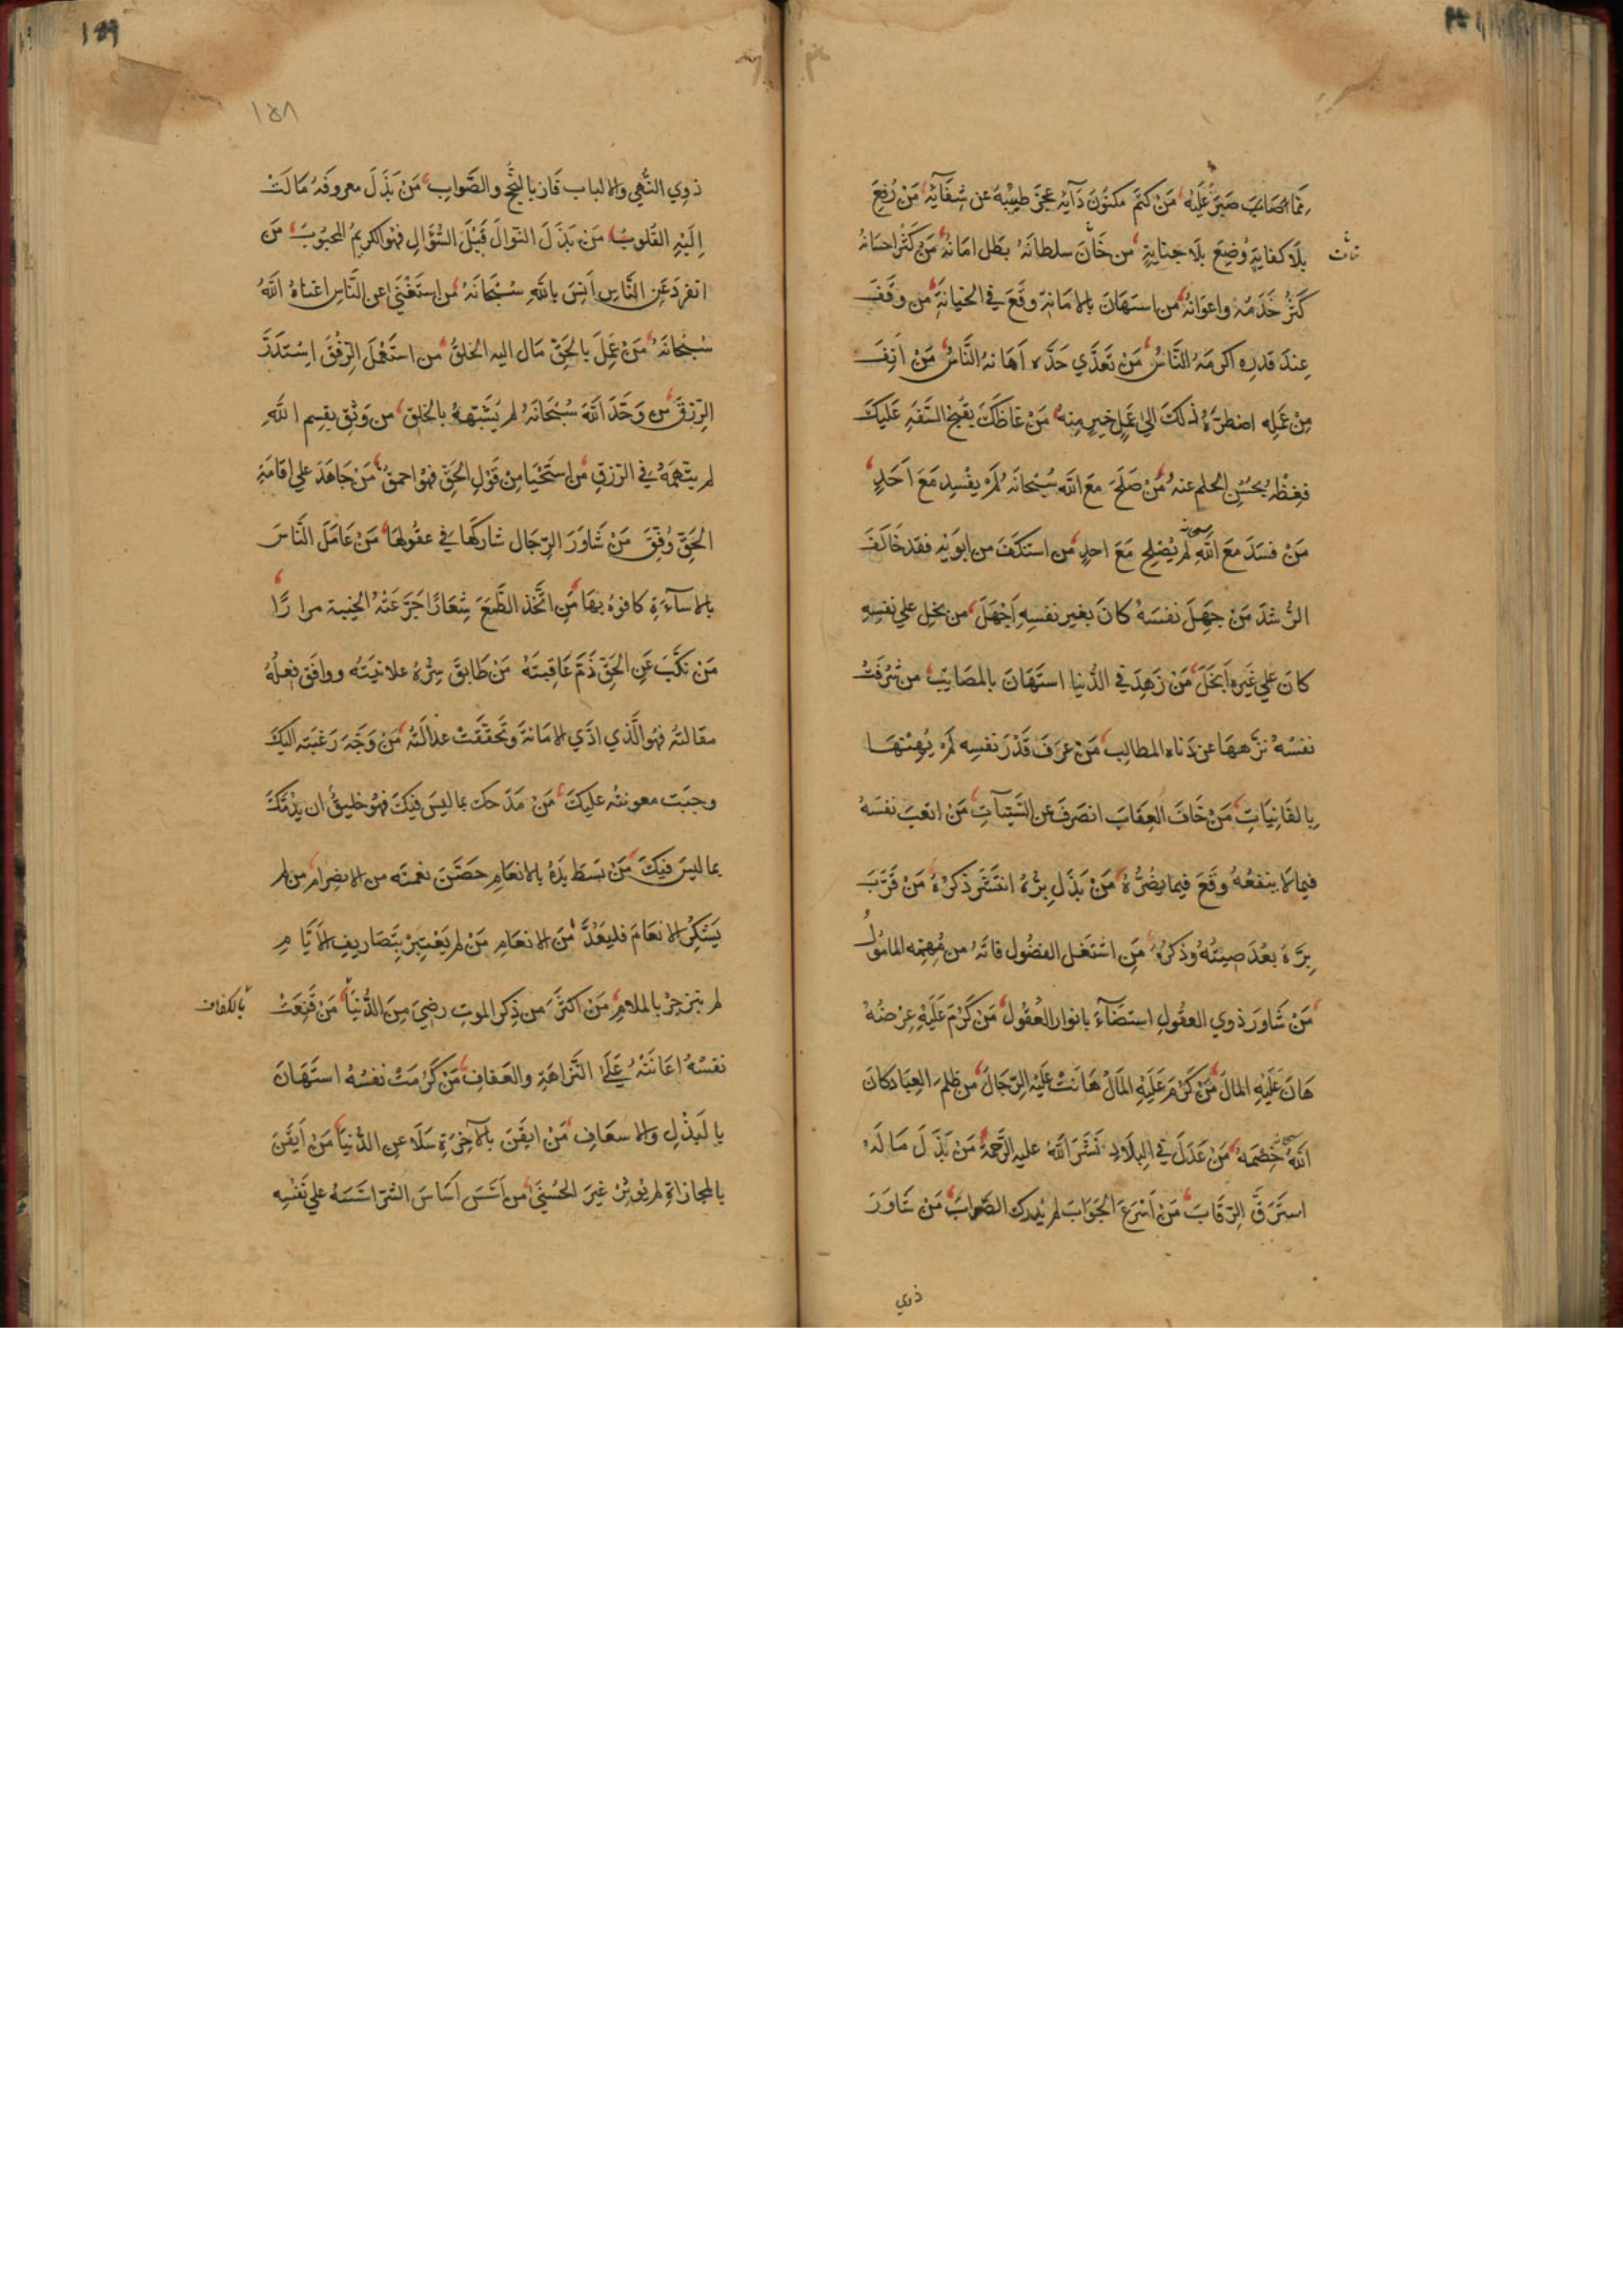 مما اصابت صبر عليه من كتم مكنون دآئه عجز طبيبه عن شفآئه من رفع
بلا كفاية وضع بلا جناية من خان سلطانه بطل امانه من كثر احسانه
كثر خدمه واعوانه من استهان بالامانة وقع في الخيانة من وقف
عند قدره اكرمه الناس من تعدي حده اهانه الناس من انف
من عمله اضطره ذلك الي عمل خير منه من غاظك بقبح السفه عليك
فغظه بحسن الحلم عنه من صلح مع الله سبحانه لم يفسد مع احد
من فسد مع الله سبحانه لم يصلح مع احد من استنكف من ابويه فقد خالف
الرشد من جهل نفسه كان بغير نفسه اجهل من بخل علي نفسه
كان علي غيره ابخل من زهد في الدنيا استهان بالمصايب من شرفت
نفسه نزهها عن دناه المطالب من عرف قدر نفسه لم يهنها
بالفانيات من خاف العقاب انصرف عن السيئآت من اتعب نفسه
فيما لا ينفعه وقع فيما يضره من بذل بره انتشر ذكره من قرب
بره بعد صيته وذكره من اشتغل الفضول فاته من مهمه المامول
من شاور ذوي العقول استضآء بانوار العقول من كرم عليه عرضه
هان عليه المال من كرم عليه المال هانت عليه الرجال من ظلم العباد كان
الله سبحانه خصمه من عدل في البلاد نشر الله عليه الرحمة من بذل ماله
استرق الرقاب من اسرع الجواب لم يدرك الصواب من شاور
ذوي
١٥٨
ذوي النهي والالباب فاز بالنجح والصواب من بذل معروفه مالت
اليه القلوب من بذل النوال قبل السؤال فهو الكريم المحبوب من
انفرد عن الناس انس بالله سبحانه من استغني عن الناس اغناه الله
سبحانه من عمل بالحق مال اليه الخلق من استعمل الرفق استدر
الرزق من وحد الله سبحانه لم يشبهه بالخلق من وثق بقسم الله
لم يتهمه في الرزق من استحيا من قول الحق فهو احمق من جاهد علي اقامة
الحق وفق من شاور الرجال شاركها في عقولها من عامل الناس
بالاسآءة كافوه بها من اتخذ الطمع شعارا جرعته الخيبة مرارا
من نكب عن الحق ذم عاقبته من طابق سره علانيته ووافق فعله
مقالته فهو الذي ادي الامانة وتحققت عدالته من وجه رغبته اليك
وجبت معونته عليك من مدحك بما ليس فيك فهو خليق ان يذمك
بما ليس فيك من بسط يده بالانعام حصن نعمته من الانصرام من لم
يشكر الانعام فليعد من الانعام من لم يعتبر بتصاريف الايام
لم ينزجر بالملام من اكثر من ذكر الموت رضي من الدنيا من قنعت
بالكفاف
نفسه اعانته علي النزاهة والعفاف من كرمت نفسه استهان
بالبذل والاسعاف من ايقن بالآخرة سلا عن الدنيا من ايقن
بالمجازاة لم يوثر غير الحسني من اسس اساس الشر اسسه علي نفسه